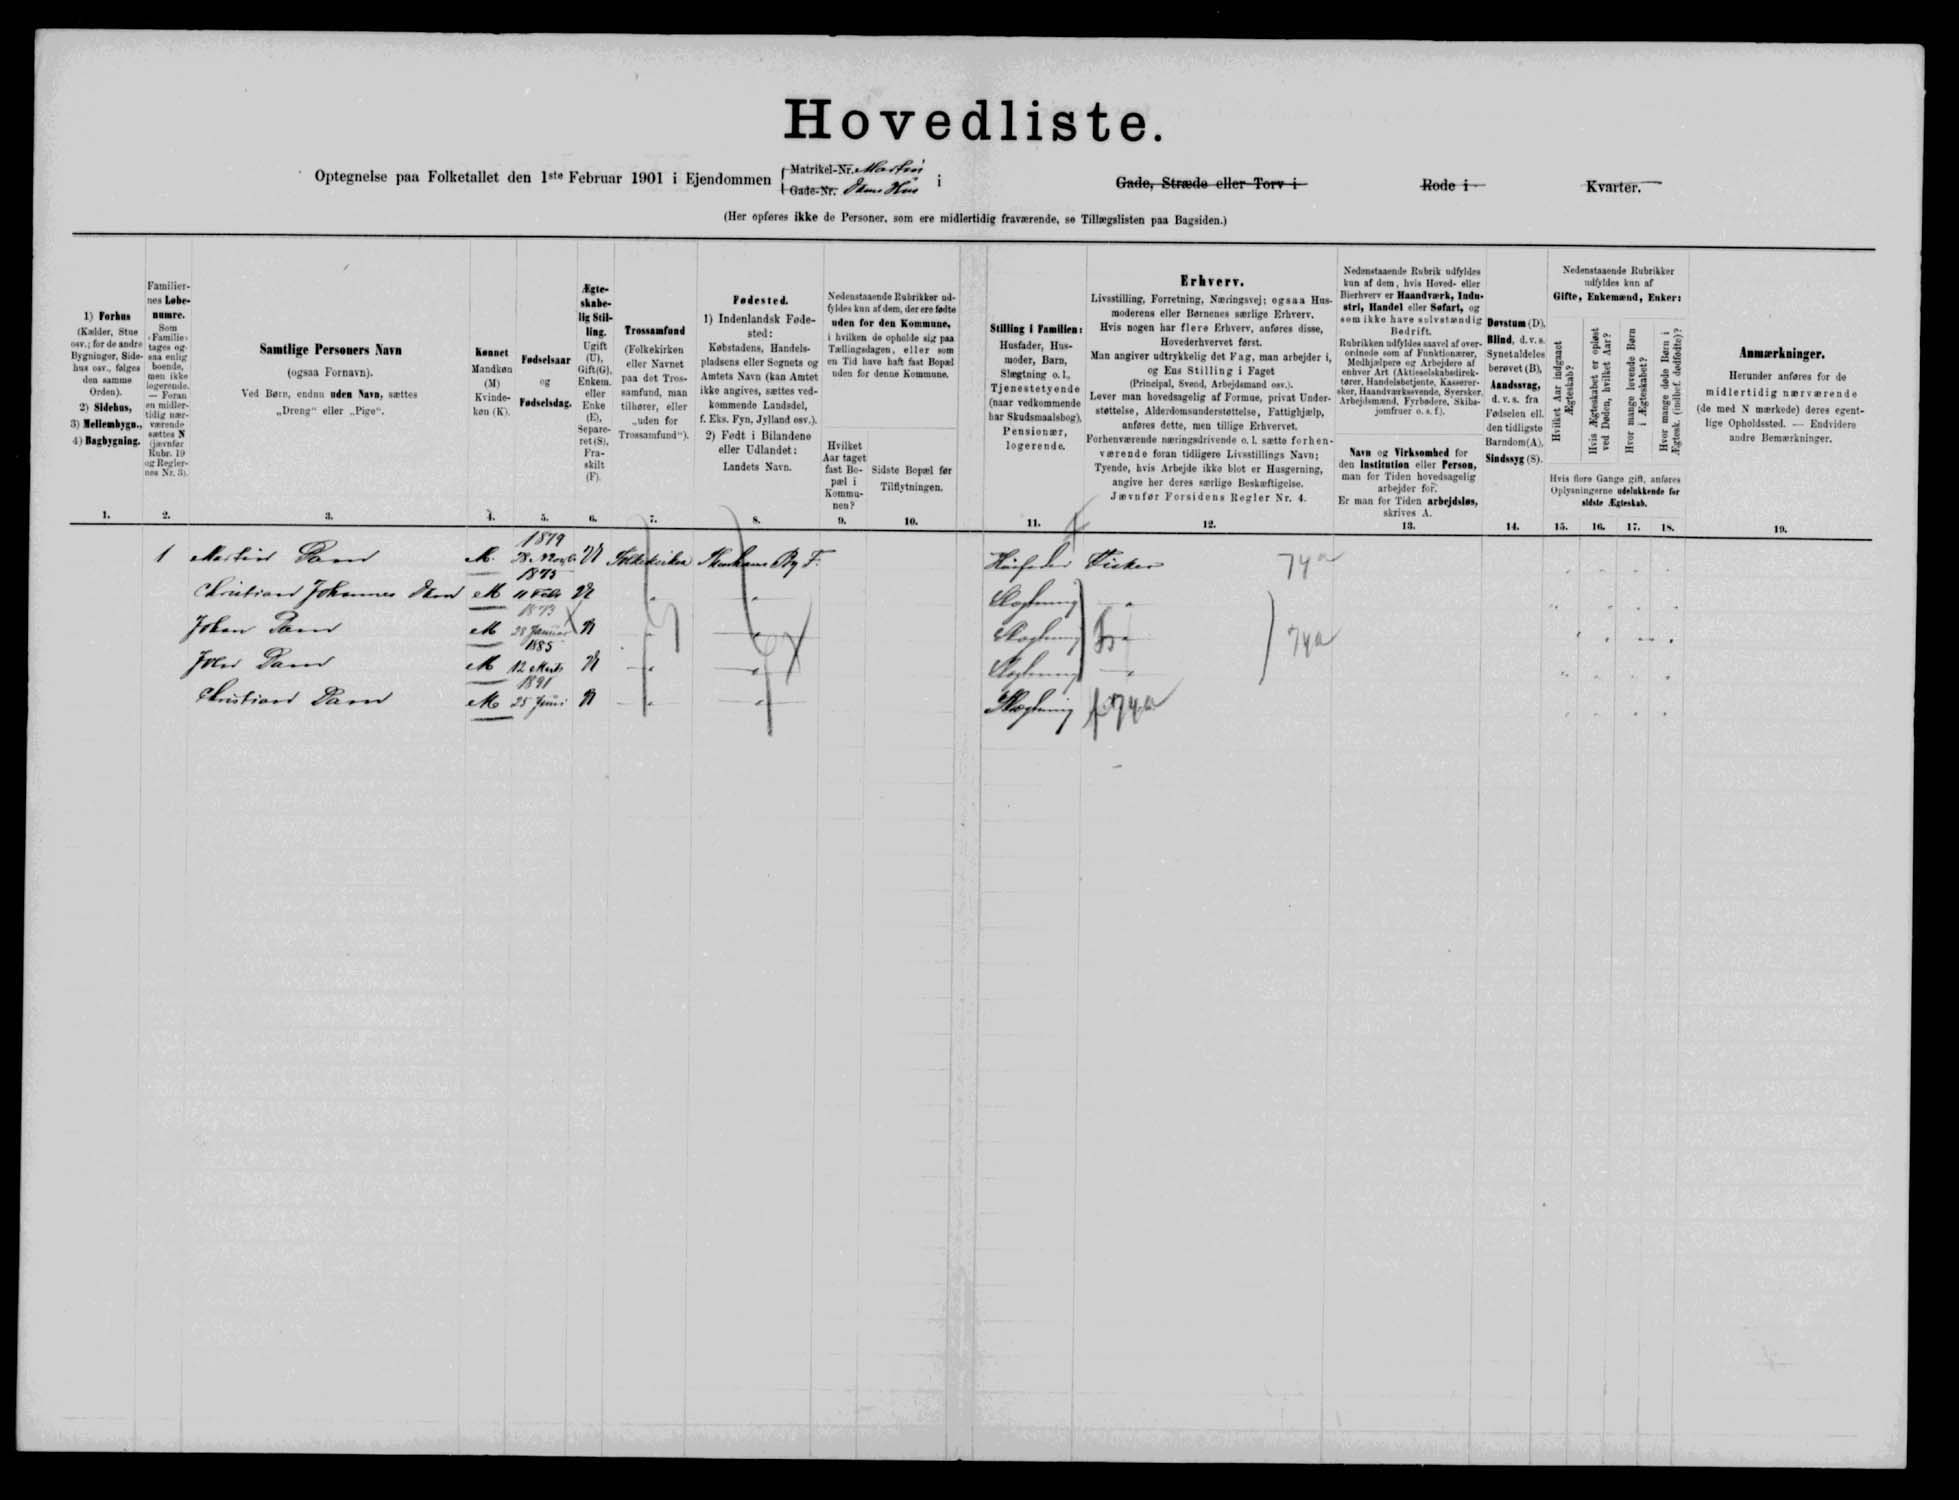 Hovedliste.
Optegnelse paa Folketallet den 1ste Februar 1901 i Ejendommen { Matrikel-Nr. Martin i Gade, Stræde eller Torv i Rode i Kvarter.
Gade-Nr. Dam Hus
(Her opføres ikke de Personer, som ere midlertidig fraværende, se Tillægslisten paa Bagsiden.)
1) Forhus
(Kælder, Stue
osv.; for de andre
Bygninger, Side-
hus osv., følges
den samme
Orden).
2) Sidehus,
3) Mellembygn.,
4) Bagbygning.
1.
Familier-
nes Løbe-
numre.
Som
„Familie“
tages og-
saa enlig
boende,
men ikke
logerende.
— Foran
en midler-
tidig nær-
værende
sættes N
(jævnfør
Rubr. 19
og Regler-
nes Nr. 3).
2.
Samtlige Personers Navn
(ogsaa Fornavn).
Ved Børn, endnu uden Navn, sættes
„Dreng“ eller „Pige“.
3.
Kønnet
Mandkøn
(M)
Kvinde-
køn (K).
4.
Fødselsaar
og
Fødselsdag.
5.
Ægte-
skabe-
lig Stil-
ling.
Ugift
(U),
Gift(G),
Enkem.
eller
Enke
(E),
Separe-
ret(S),
Fra-
skilt
(F).
6.
Trossamfund
(Folkekirken
eller Navnet
paa det Tros-
samfund, man
tilhører, eller
„uden for
Trossamfund“).
7.
Fødested.
1) Indenlandsk Føde-
sted:
Købstadens, Handels-
pladsens eller Sognets og
Amtets Navn (kan Amtet
ikke angives, sættes ved-
kommende Landsdel,
f. Eks. Fyn, Jylland osv.).
2) Født i Bilandene
eller Udlandet:
Landets Navn.
8.
Nedenstaaende Rubrikker ud-
fyldes kun af dem, der ere fødte
uden for den Kommune,
i hvilken de opholde sig paa
Tællingsdagen, eller som
en Tid have haft fast Bopæl
uden for denne Kommune.
Hvilket
Aar taget
fast Bo-
pæl i
Kommu-
nen?
9.
Sidste Bopæl før
Tilflytningen.
10.
Stilling i Familien:
Husfader, Hus-
moder, Barn,
Slægtning o. l.,
Tjenestetyende
(naar vedkommende
har Skudsmaalsbog),
Pensionær,
logerende.
11.
Erhverv.
Livsstilling, Forretning, Næringsvej; ogsaa Hus-
moderens eller Børnenes særlige Erhverv.
Hvis nogen har flere Erhverv, anføres disse,
Hovederhvervet først.
Man angiver udtrykkelig det Fag, man arbejder i,
og Ens Stilling i Faget
(Principal, Svend, Arbejdsmand osv.).
Lever man hovedsagelig af Formue, privat Under-
støttelse, Alderdomsunderstøttelse, Fattighjælp,
anføres dette, men tillige Erhvervet.
Forhenværende næringsdrivende o. l. sætte forhen-
værende foran tidligere Livsstillings Navn;
Tyende, hvis Arbejde ikke blot er Husgerning,
angive her deres særlige Beskæftigelse.
Jævnfør Forsidens Regler Nr. 4.
12.
Nedenstaaende Rubrik udfyldes
kun af dem, hvis Hoved- eller
Bierhverv er Haandværk, Indu-
stri, Handel eller Søfart, og
som ikke have selvstændig
Bedrift.
Rubrikken udfyldes saavel af over-
ordnede som af Funktionærer,
Medhjælpere og Arbejdere af
enhver Art (Aktieselskabsdirek-
tører, Handelsbetjente, Kasserer-
sker, Haandværkssvende, Syersker,
Arbejdsmænd, Fyrbødere, Skibs-
jomfruer o. s. f.).
Navn og Virksomhed for
den Institution eller Person,
man for Tiden hovedsagelig
arbejder for.
Er man for Tiden arbejdsløs,
skrives A.
13.
Døvstum (D),
Blind, d. v. s.
Synet aldeles
berøvet (B),
Aandssvag,
d. v. s. fra
Fødselen ell.
den tidligste
Barndom(A),
Sindssyg (S).
14.
Nedenstaaende Rubrikker
udfyldes kun af
Gifte, Enkemænd, Enker:
Hvilket Aar indgaaet
Ægteskab?
Hvis Ægteskabet er opløst
ved Døden, hvilket Aar?
Hvor mange levende Børn
i Ægteskabet?
Hvor mange døde Børn i
Ægtesk. (indbef. dødfødte)?
Hvis flere Gange gift, anføres
Oplysningerne udelukkende for
sidste Ægteskab.
15. 16. 17. 18.
Anmærkninger.
Herunder anføres for de
midlertidig nærværende
(de med N mærkede) deres egent-
lige Opholdssted. — Endvidere
andre Bemærkninger.
19.
1 Martin Dam M. 1879 28 Novb U Folkekirken By F. Husfader Fisker 74a
Christian Johannes Dam M 1875 11 Feb U „ „ Slægtning „
Johan Dam M 1873 28 Januar U „ „ Slægtning „ 74a
Joen Dam M 1885 12 Marts U „ „ Slægtning „
Christian Dam M 1891 25 Juni U „ „ Slægtning f 74a